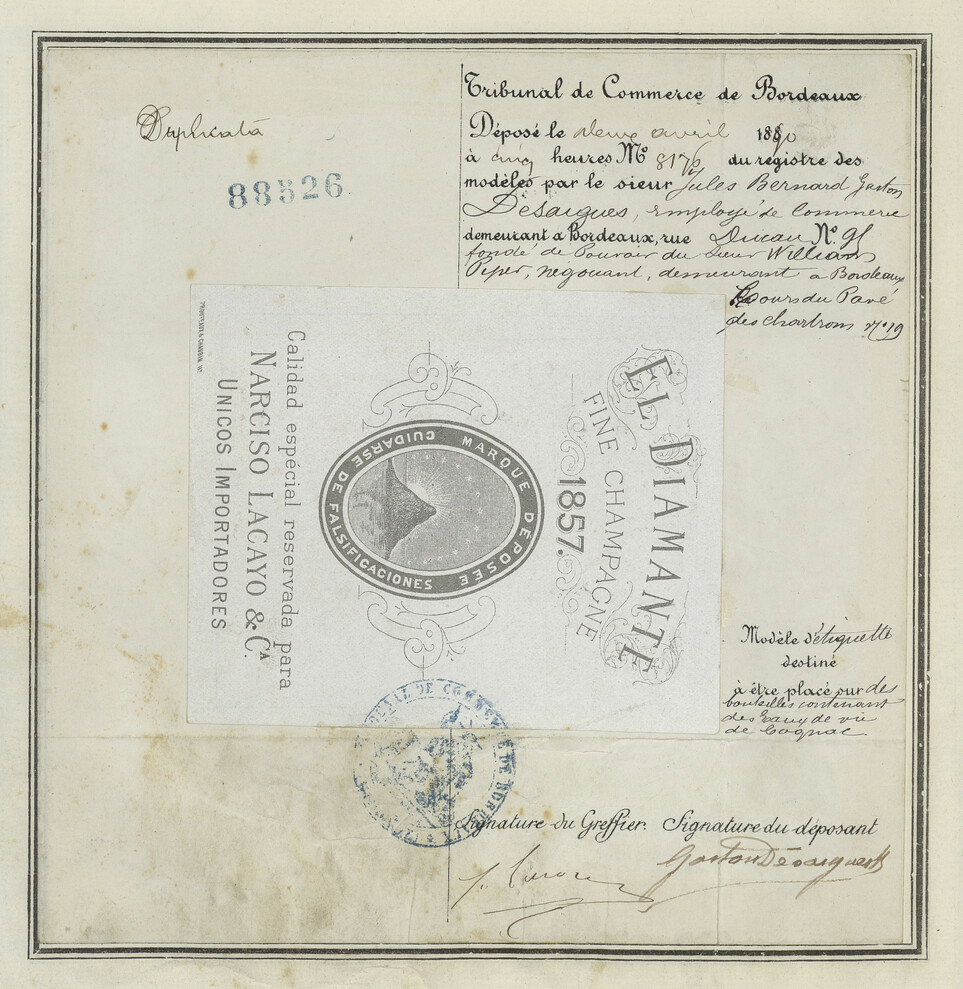 Duplicata
88526
Tribunal de Commerce de Bordeaux
Déposé le deux avril 1890
à cinq heures Nº 8176 du registre des
modèles par le sieur Jules Bernard Gaston
Désaigues, employé de Commerce
demeurant à Bordeaux, rue Ducau Nº 91
fondé de Pouvoir du Sieur William
Piper, négociant, demeurant à Bordeaux
Cours du Pavé
des Chartrons Nº 19
EL DIAMANTE
FINE CHAMPAGNE
1857.
MARQUE DÉPOSÉE
CUIDARSE DE FALSIFICACIONES
Calidad espécial reservada para
NARCISO LACAYO & CA.
UNICOS IMPORTADORES
Modèle d'étiquette
destiné
à être placé sur des
bouteilles contenant
des Eaux de vie
de Cognac
TRIBUNAL DE COMMERCE DE BORDEAUX
Signature du Greffier. Signature du déposant
Gaston Désaigues